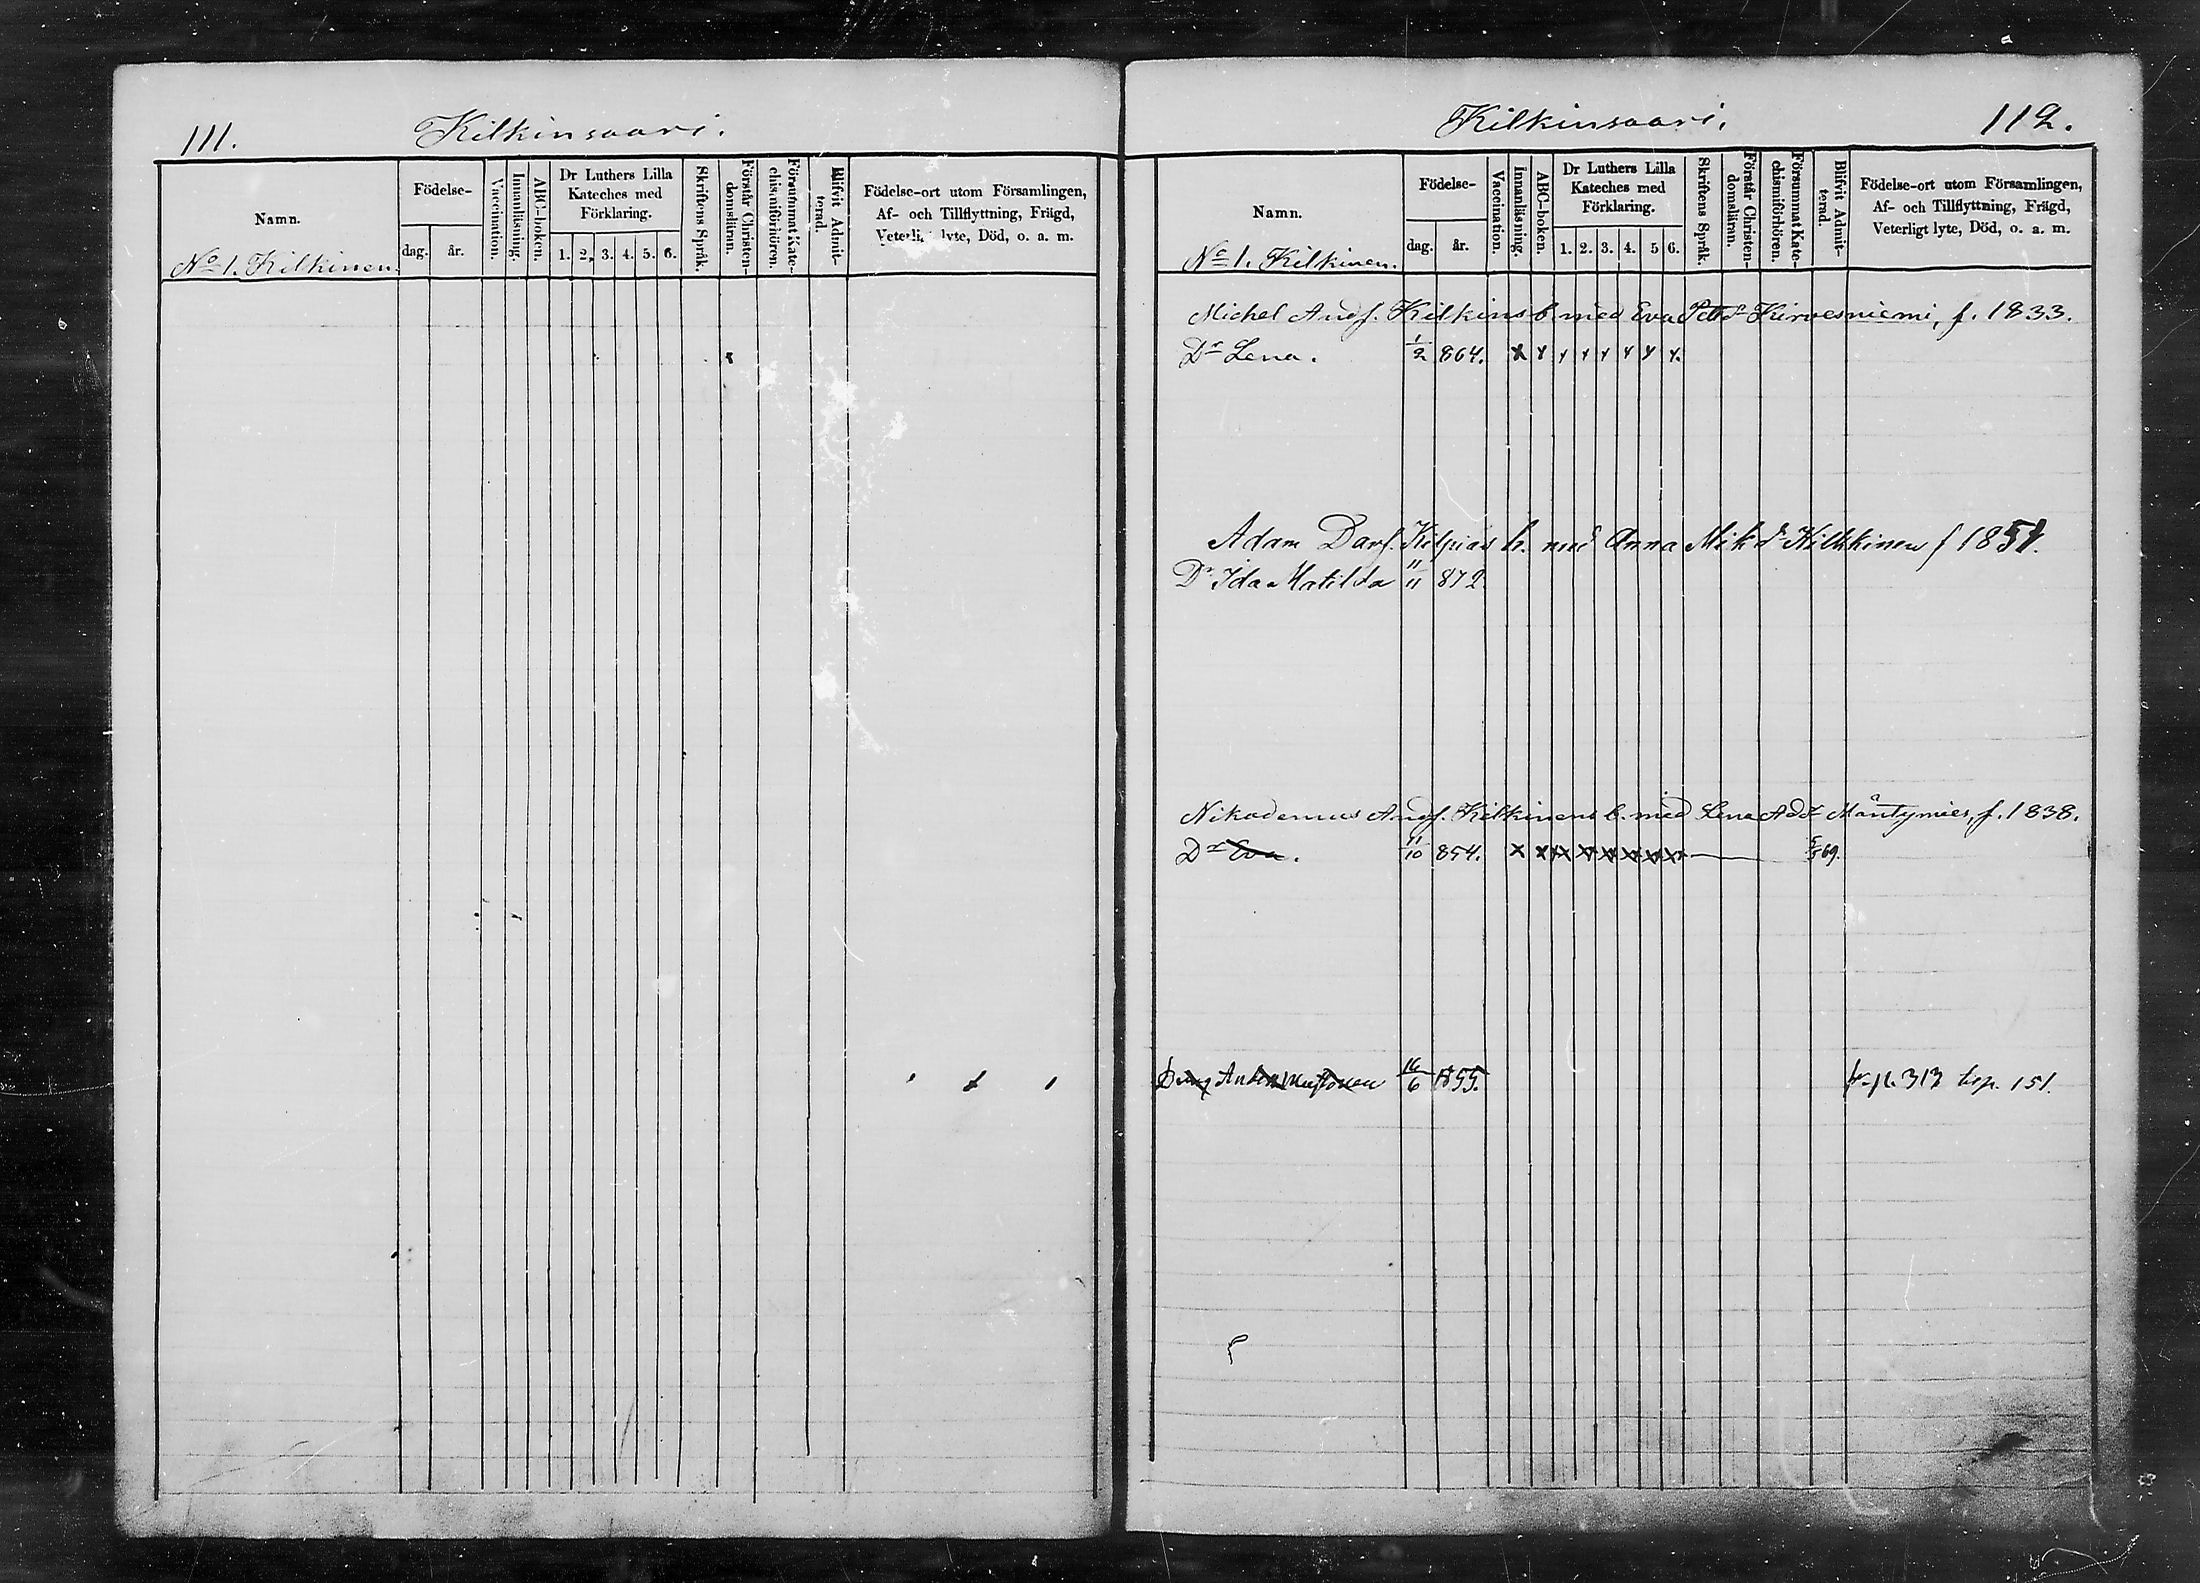 111.
Kilkinsaari.
Namn.
Födelse-
dag.
år.
Vaccination.
Innanläsning.
ABC-boken.
Dr Luthers Lilla
Kateches med
Förklaring.
1. 2. 3. 4. 5. 6.
Skriftens Språk.
Förstår Christen-
domsläran.
Försummat Kate-
chismiförhören.
Blifvit Admit-
terad.
Födelse-ort utom Församlingen,
Af- och Tillflyttning, Frägd,
lyte, Död, o. a. m.
No 1. Kilkinen.
Kilkinsaari.
112.
Namn.
Födelse-
dag.
år.
Vaccination.
Innanläsning.
ABC-boken.
Dr Luthers Lilla
Kateches med
Förklaring.
1. 2. 3. 4. 5 6.
Skriftens Språk.
Förstår Christen-
domsläran.
Försummat Kate-
chismiförhören.
Blifvit Admit-
terad.
Födelse-ort utom Församlingen,
Af- och Tillflyttning, Frägd,
Veterligt lyte, Död, o. a. m.
No 1. Kilkinen.
Michel Andf. Kilkins b. med Eva Petdr Kirvesniemi, f. 1833.
Dr Lena. 1/2 864. x x x x x x x x.
Adam Davf. b. med Anna Mikdr f 1851.
Dr Ida Matilda 11/11 872.
Nikodemus Andf. Kilkinens b. med Lena Addr Mäntymies, f. 1838.
Dr Eva. 11/10 854. x x x x x x x x 69.
16/6 1855. p. 313 151.